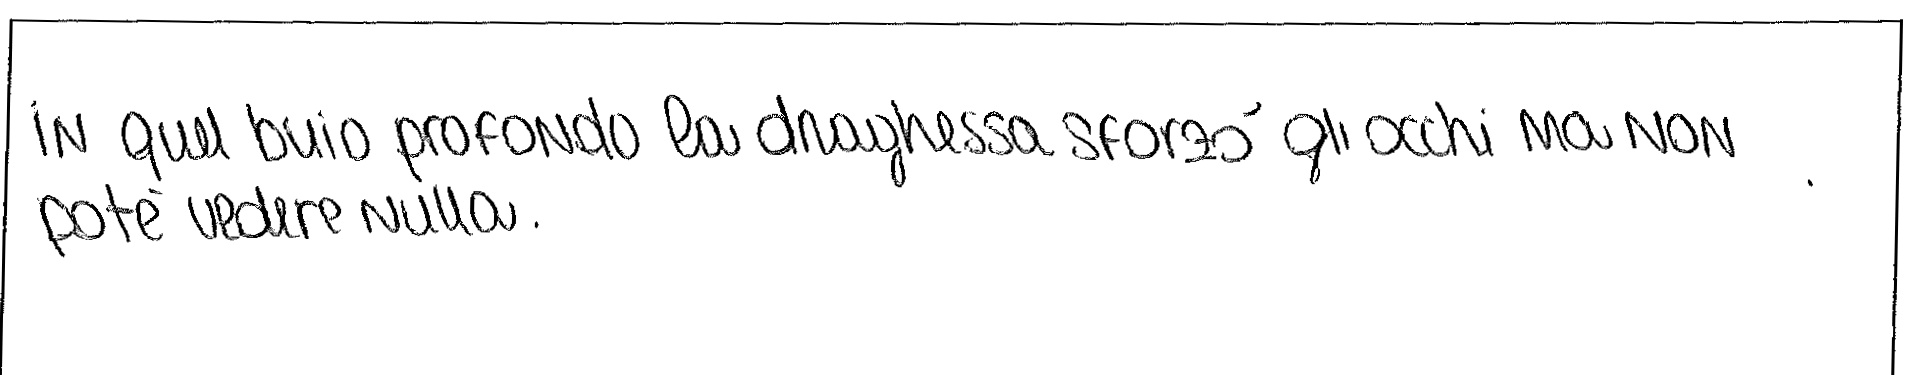 in quel buio profondo la draghessa sforzó gli occhi ma non
potè vedere nulla.